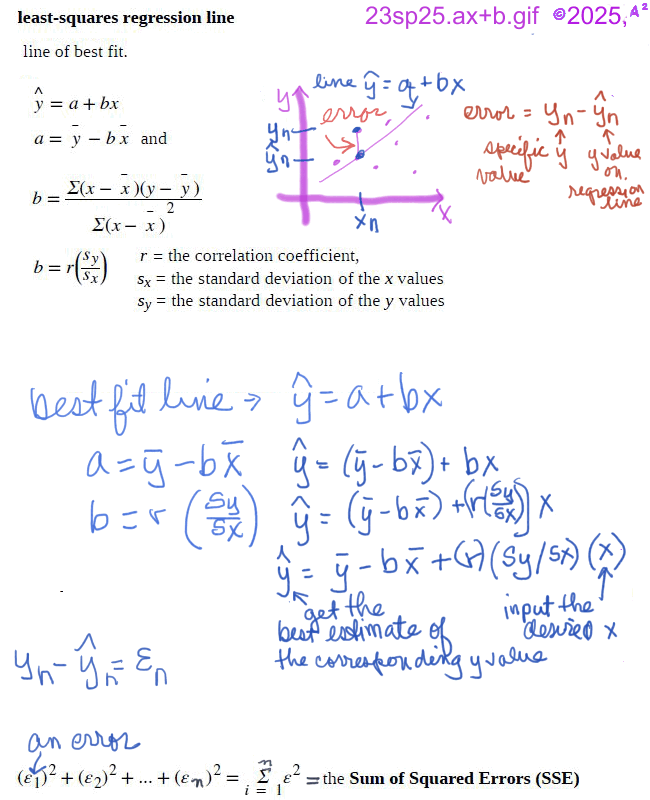 least-squares regression line
23sp25.ax+b.gif ©2025, A²
line of best fit.
ŷ = a + bx
a = ȳ − bx̄ and
b = Σ(x − x̄)(y − ȳ) / Σ(x − x̄)²
b = r(sy/sx)
r = the correlation coefficient,
sx = the standard deviation of the x values
sy = the standard deviation of the y values
line ŷ = a + bx
y
error
yn
ŷn
xn
x
error = yn − ŷn
specific y value
y value on regression line
best fit line → ŷ = a + bx
a = ȳ − bx̄
ŷ = (ȳ − bx̄) + bx
b = r (sy/sx)
ŷ = (ȳ − bx̄) + (r(sy/sx)) x
ŷ = ȳ − bx̄ + (r)(sy/sx)(x)
get the best estimate of the corresponding y value
input the desired x
yn − ŷn = εn
an error
(ε1)² + (ε2)² + ... + (εn)² = n Σ i = 1 ε² = the Sum of Squared Errors (SSE)